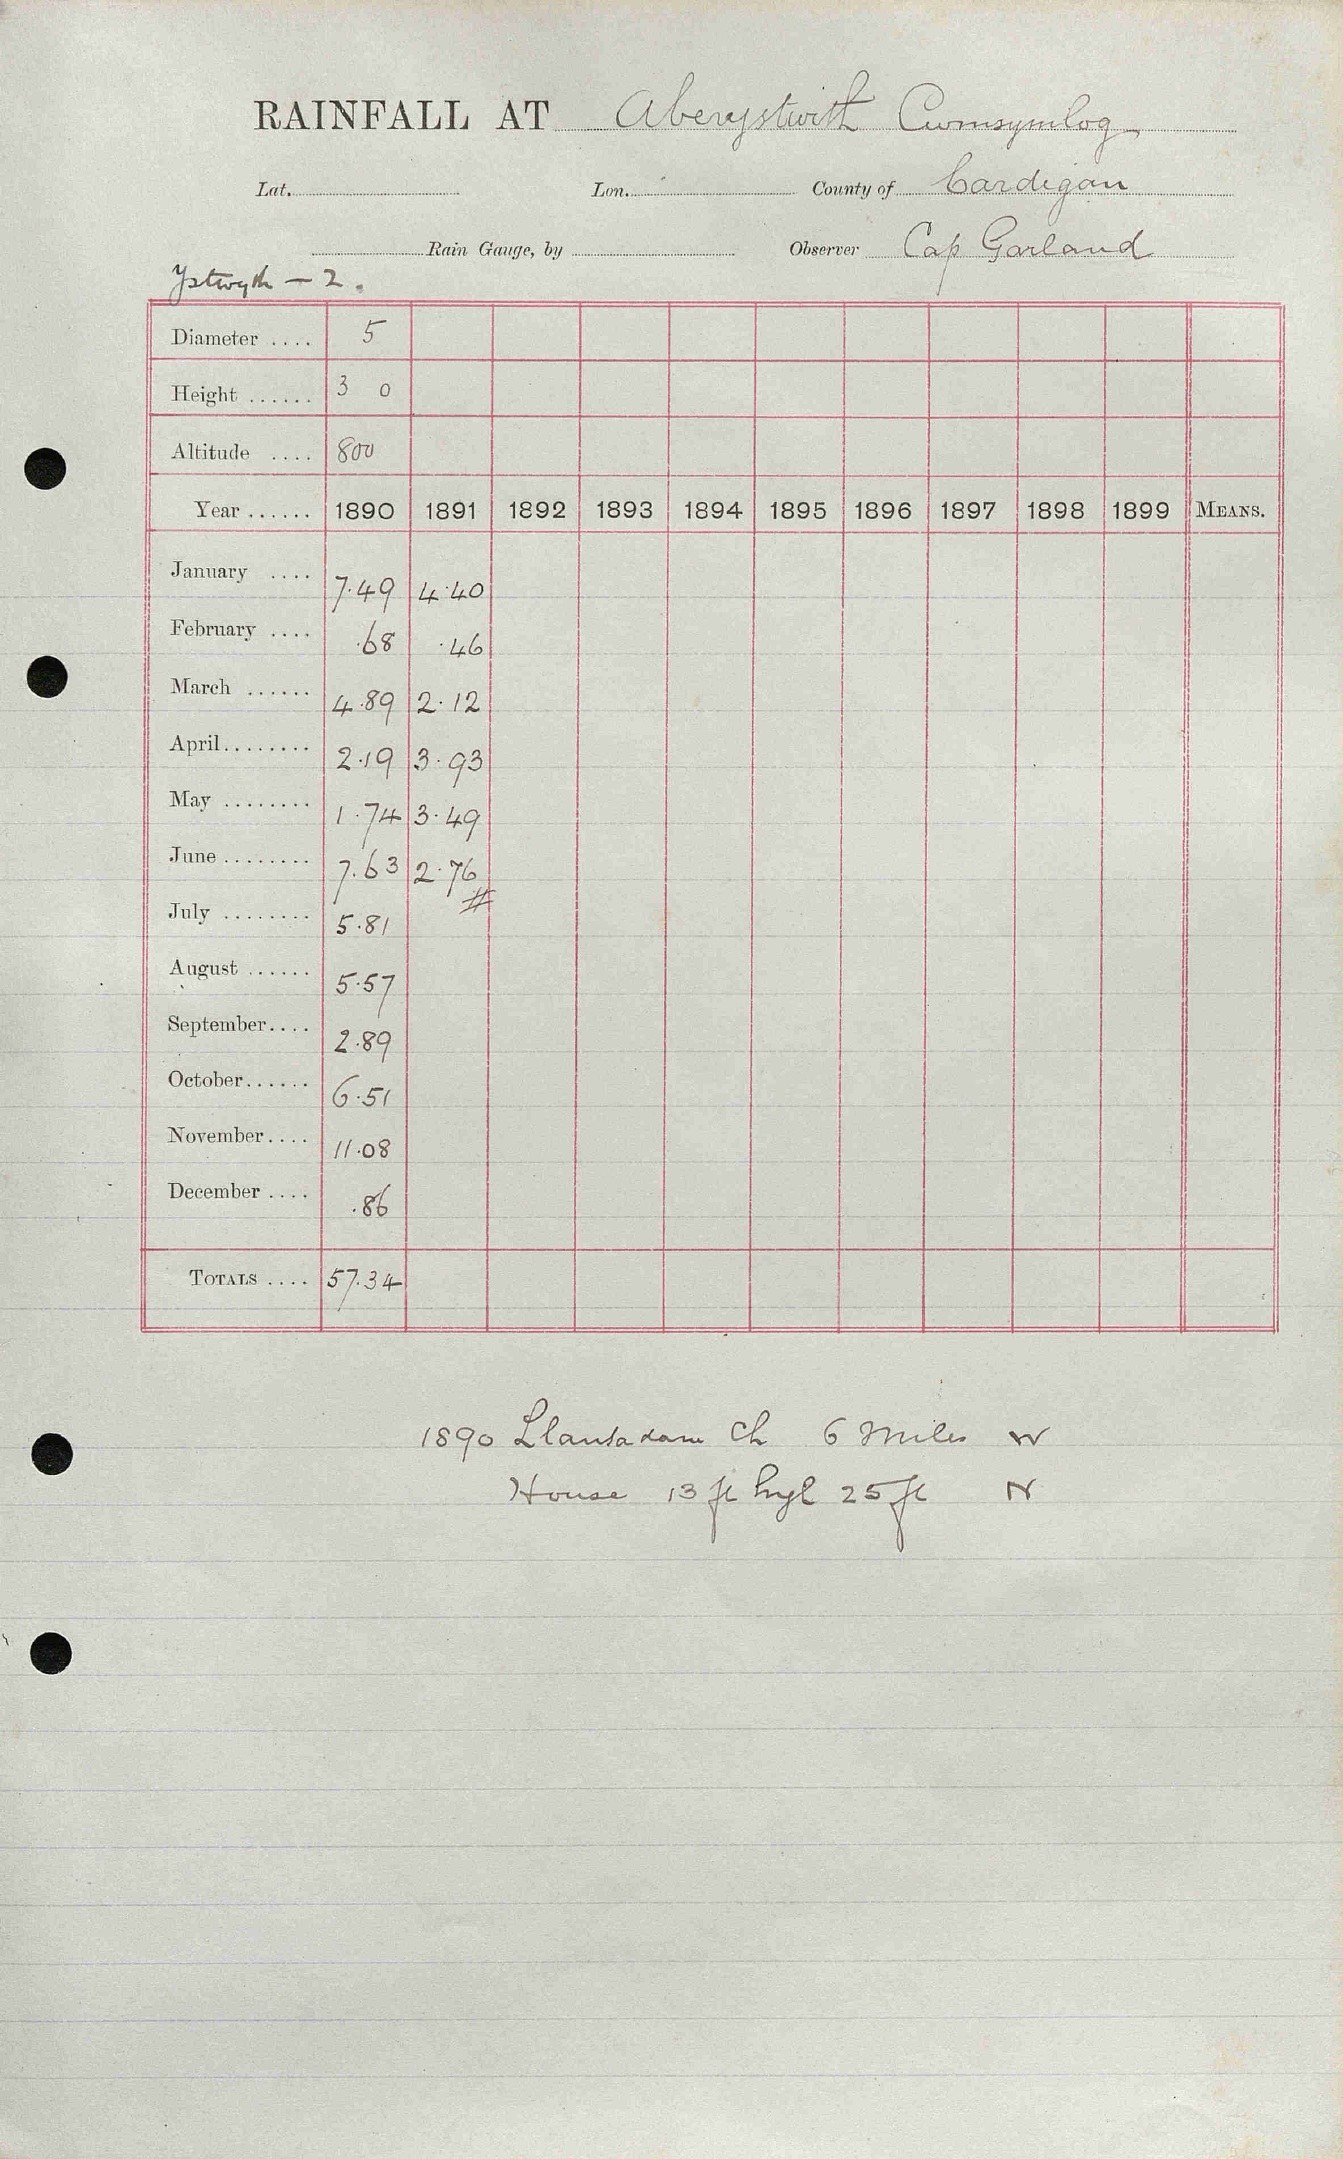 RAINFALL AT Aberystwith Cwmsymlog
Lat. Lon. County of Cardigan
Rain Gauge, by Observer Cap Garland
Ystwyth – 2.
Diameter .... 5
Height ...... 3 0
Altitude .... 800
Year ...... 1890 1891 1892 1893 1894 1895 1896 1897 1898 1899 MEANS.
January .... 7.49 4.40
February .... .68 .46
March ...... 4.89 2.12
April ........ 2.19 3.93
May ........ 1.74 3.49
June ........ 7.63 2.76
#
July ........ 5.81
August ...... 5.57
September .... 2.89
October ...... 6.51
November .... 11.08
December .... .86
TOTALS .... 57.34
1890 Ch 6 Miles W
House 13 ft 25 ft N